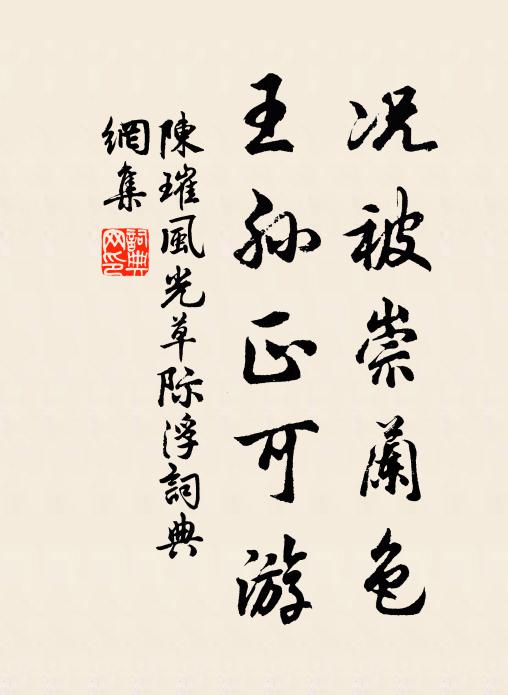 况被崇蘭色
王孙正可游
陳璀風光草际浮詞典
網集
詞典
网印